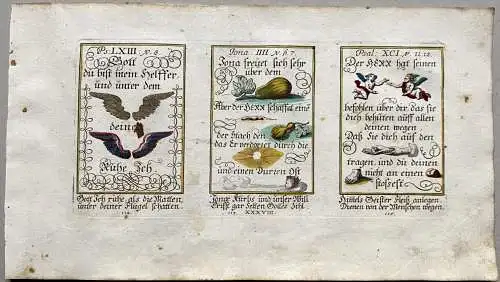 Ps. LXIII v. 8.
Gott
du bist mein Helffer
und unter dem
deine
Ruhe Ich
Gott Ich ruhe als die Matten
unter deiner Flügel schatten
Jona IIII v. 6. 7.
Jona freuet sich sehr
über dem
Aber der HERR schaffat eine
der stach den
das Er verdorret durch die
und einen Durren Ost
Jonae Kürbs und unser Will
115. XXXVIII
Psal. XCI v. 11. 12.
Der HERR hat seinen
befohlen über dir das sie
dich behüten auff allen
deinen wegen
Daß Sie dich auf den
tragen und die deinen
nicht an einen
stossest
Himels Geister Fleiß anlegen
Dienen von der Menschen wegen.
116.